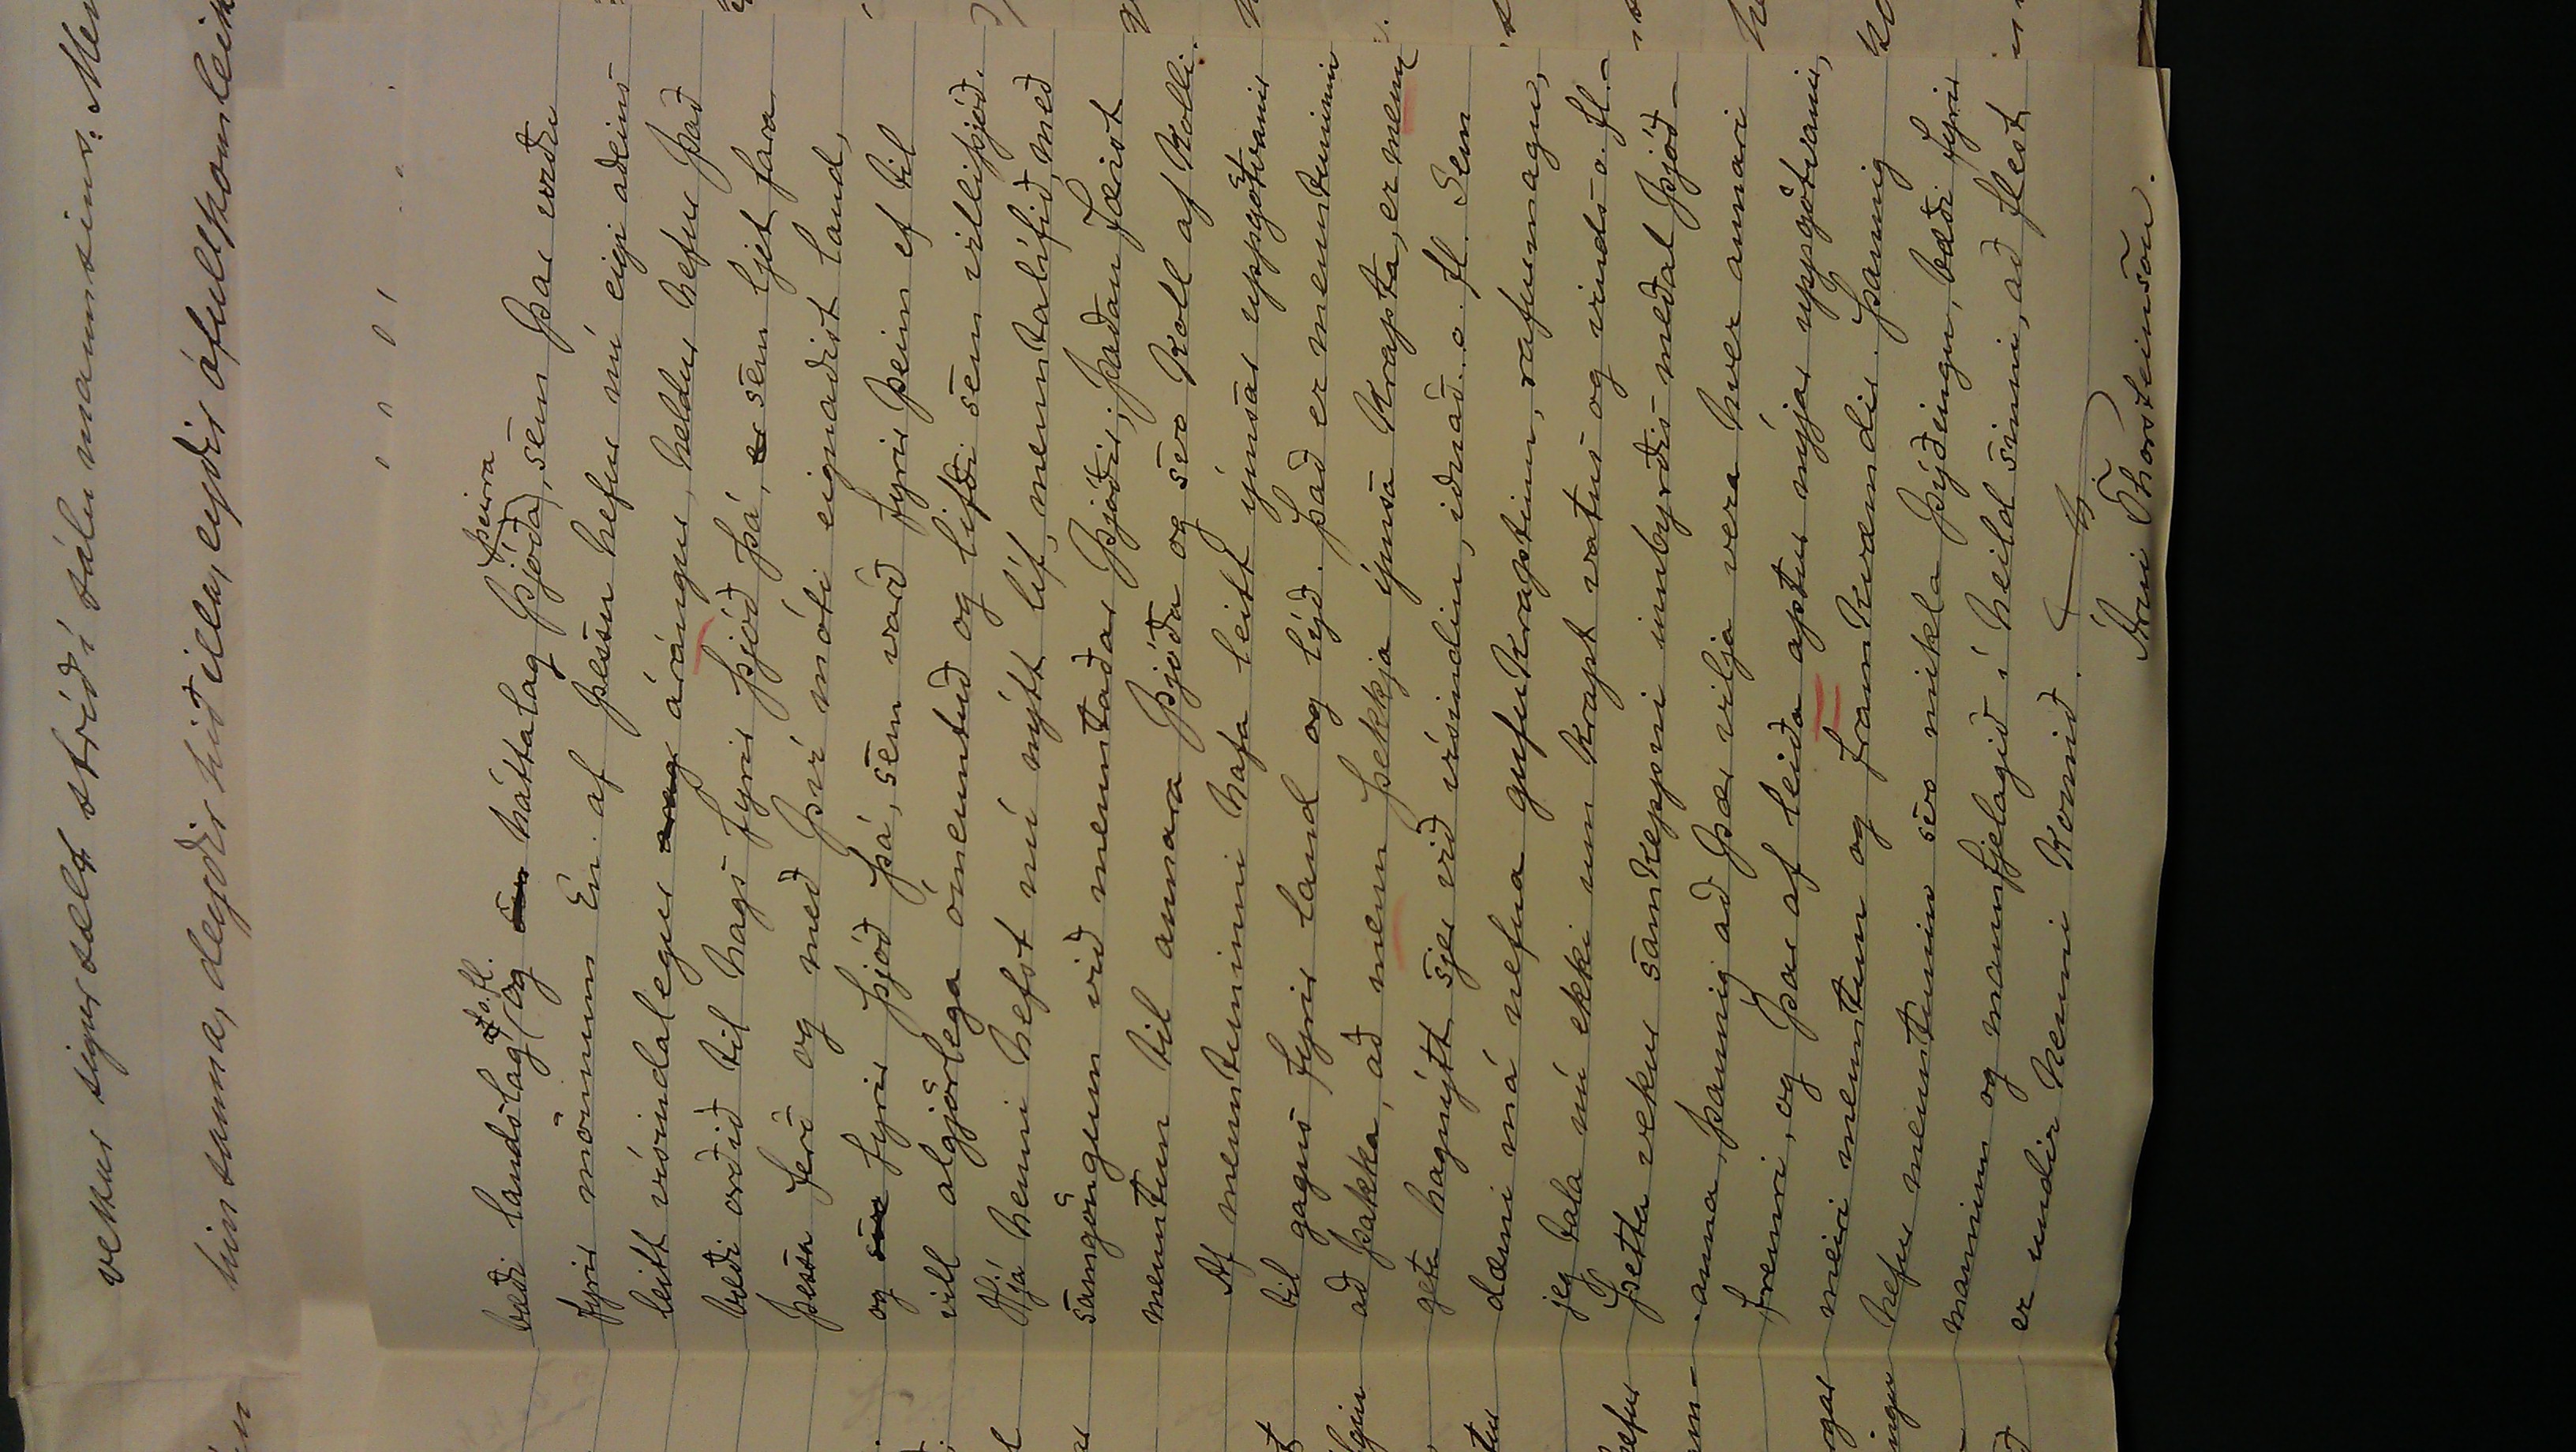 vekur sigursælt stríð í sálu mannsins: Men
hin sanna, deyðir hið illa, eyðir ófullkomleik
þeirra
o.fl.
bæði landslag (og háttalag þjóða), sem þar urðu
fyrir mönnum. En af þessu hefur nú eigi aðeins
leitt vísindalegur arang árángur, heldur hefur það
bæði orðið til hags fyrir þjóð þá, er sem ljet fara
þessa ferð og með því móti eignaðist land,
og fyrir þjóð þá, sem varð fyrir þeim ef til
vill algjörlega ómenntuð og lifði sem villiþjóð.
Hjá henni hefst nú nýtt líf, menntalífið, með
samgöngum við menntaðar þjóðir; þaðan færist
menntun til annara þjóða og svo koll af kolli.
Af menntuninni hafa leitt ýmsar uppgötvanir
til gagns fyrir land og lýð. Það er menntuninni
að þakka, að menn þekkja ýmsa krapta, er menn
geta hagnýtt sjer við vísindin, iðnað o. fl. Sem
dæmi má nefna gufukraptinn, rafurmagn,
jeg tala nú ekki um krapt vatns og vinds o. fl.
Þetta vekur samkeppni innbyrðis meðal þjóð-
anna, þannig að þær vilja vera hver annari
fremri, og þar af leiða aptur nýjar uppgötvanir,
meiri menntun og framkvæmdir. Þannig
hefur menntunin svo mikla þýðingu, bæði fyrir
manninn og mannfjelagið í heild sinni, að flest
er undir henni komið.
Árni Thorsteinsson.